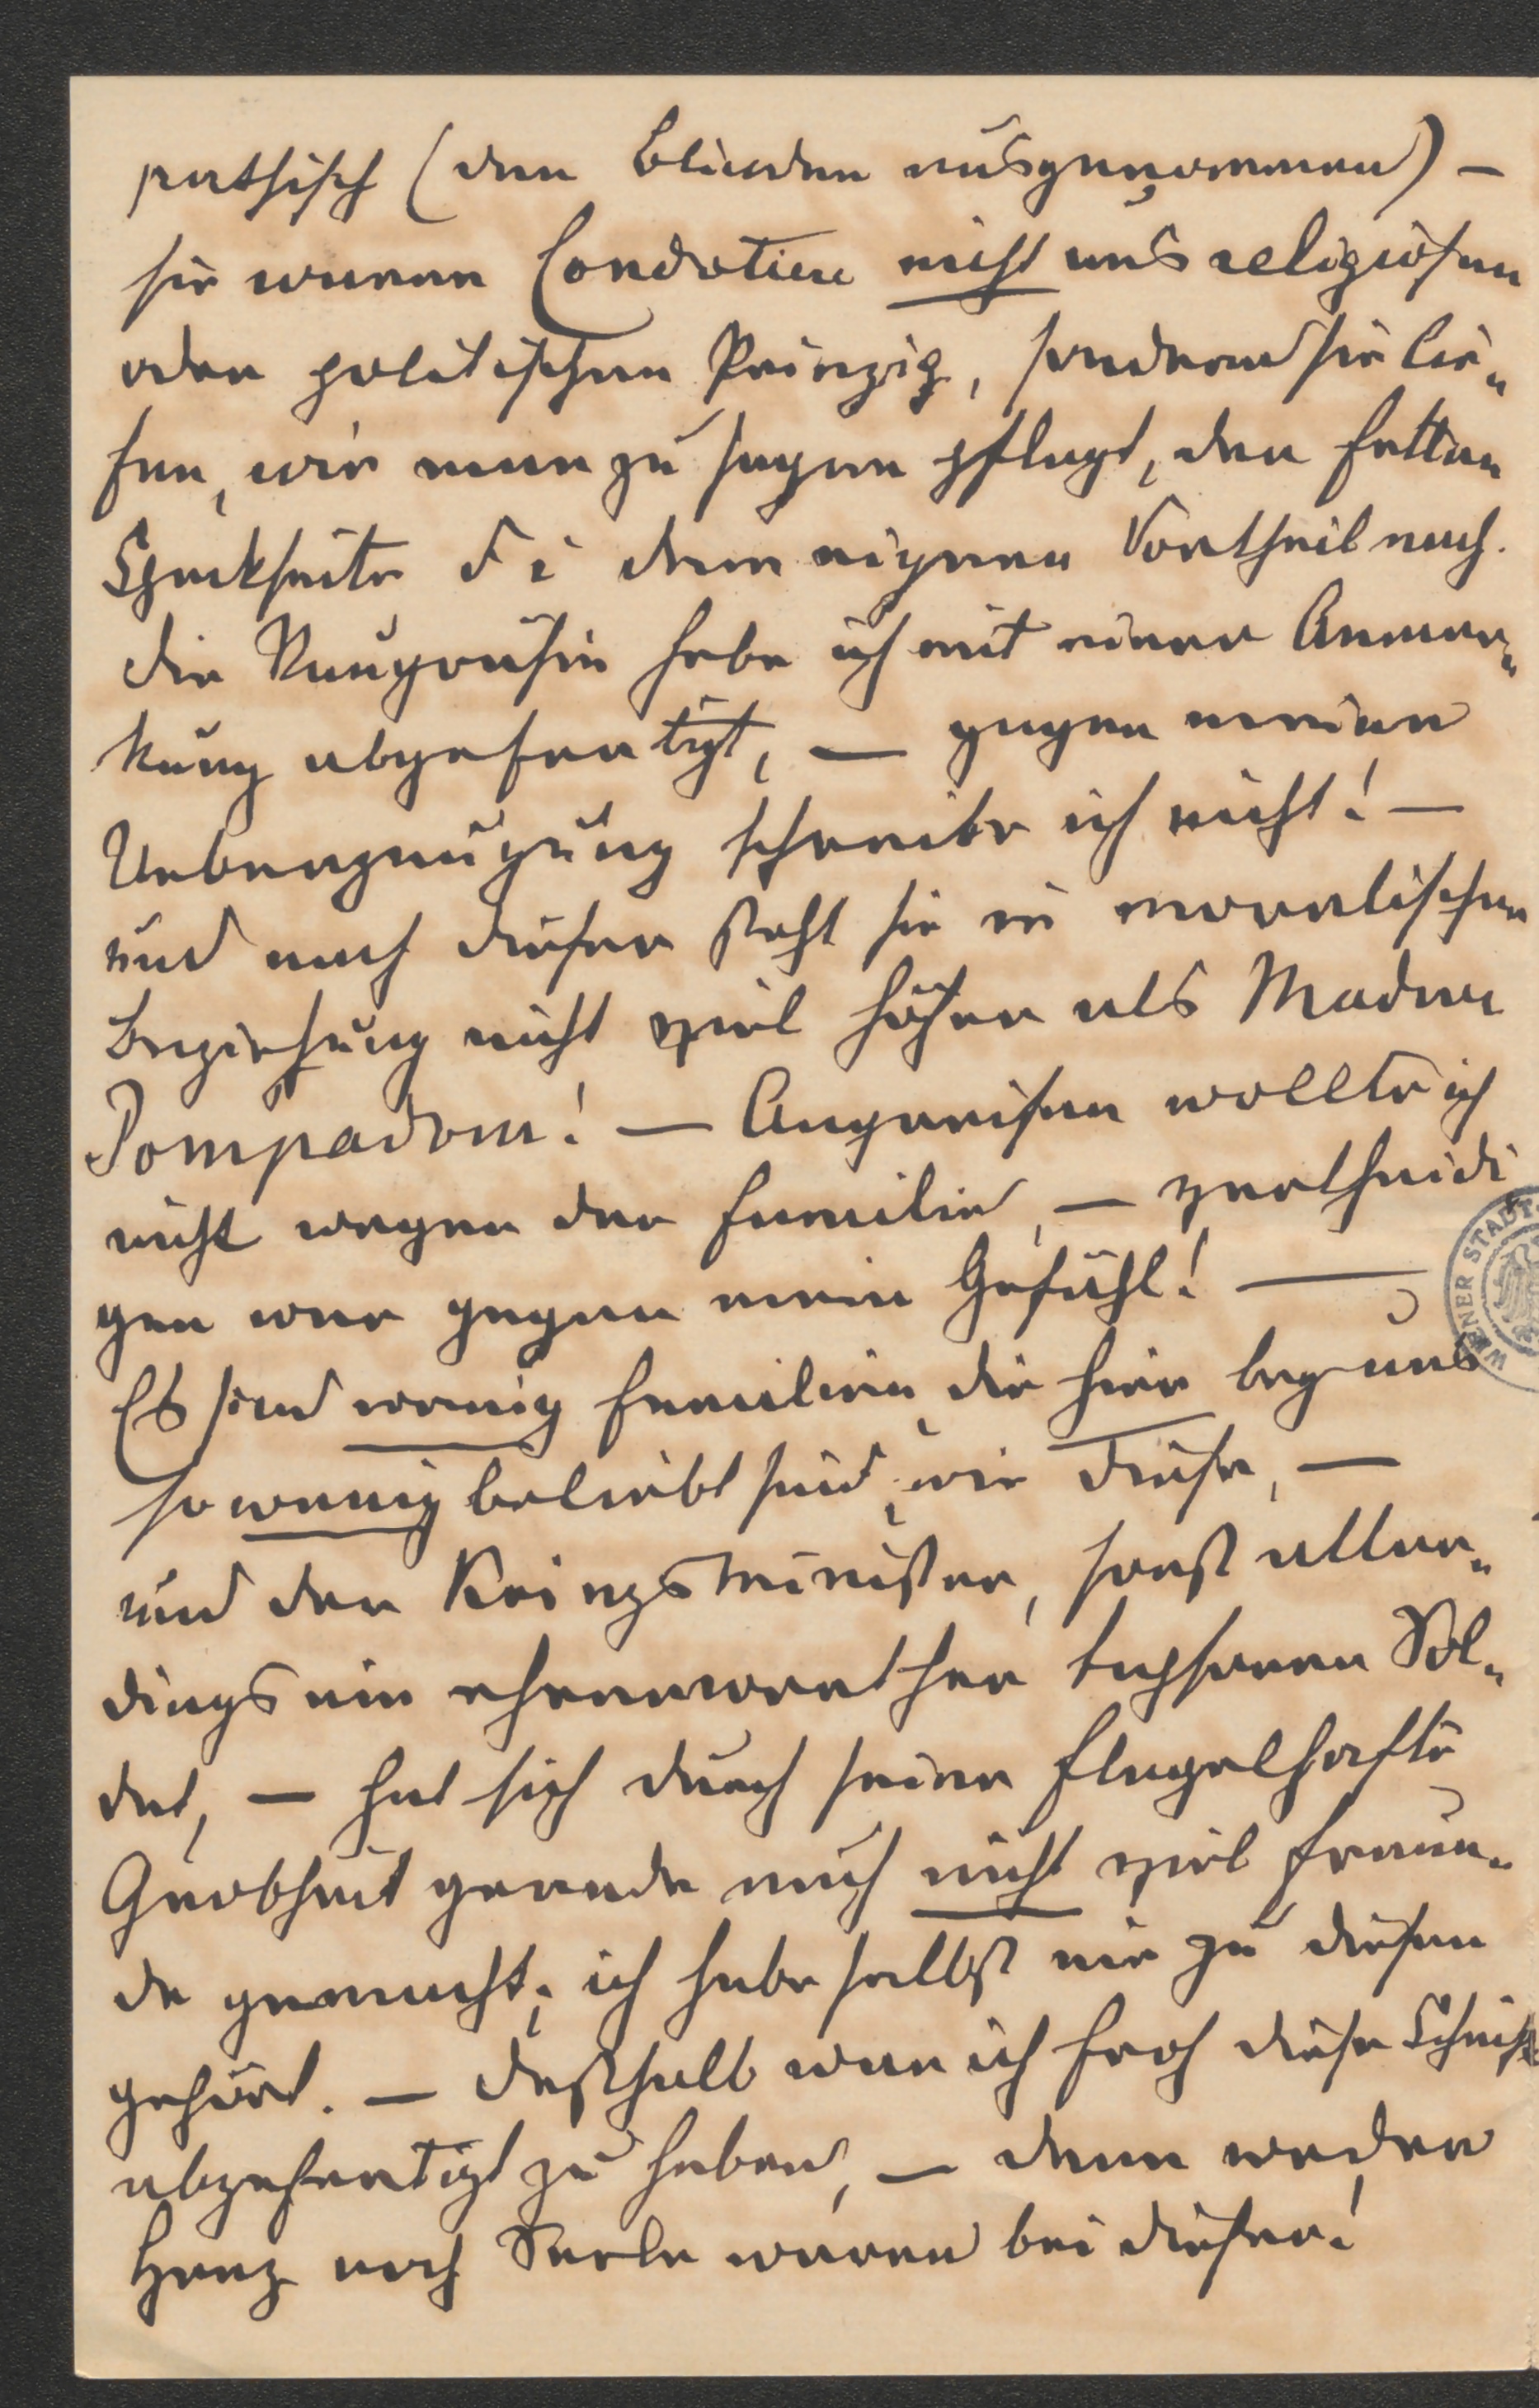 pathisch (den Blinden ausgenommen) –
sie waren Condotiere nicht aus religiösem
oder politischem Prinzip, sondern sie lie„
fen, wie man zu sagen pflegt, der fetten
Speckseite d i dem eigenen Vortheil nach.
Die Raugräfin habe ich mit einer Anmer„
kung abgefertigt, – gegen meine
Ueberzeugung schreibe ich nicht! –
und nach dieser steht sie in moralischer
Beziehung nicht viel höher als Madme
Pompadour! – Angreifen wollte ich
nicht wegen der Familie, – vertheidi
gen war gegen mein Gefühl! –
Es sind wenig Familien, die hier bey uns
so wenig beliebt sind, wie diese, –
und der Kriegsminister, sonst aller„
dings ein ehrenwerther tapferer Sol„
dat, – hat sich durch seine flegelhafte
Grobheit gerade auch nicht viel Freun„
de gemacht; ich habe selbst nie zu diesen
gehört. – Deßhalb war ich froh diese Schrift
abgefertigt zu haben, – denn weder
Herz noch Seele waren bei dieser!
WIENER STADT